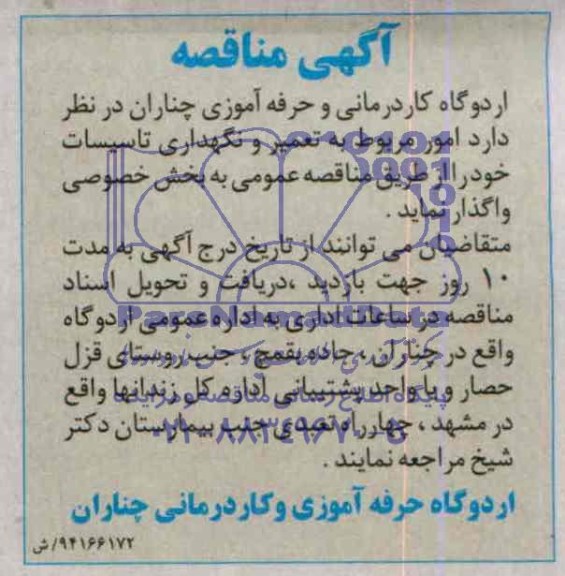 آگهی مناقصه
اردوگاه کاردرمانی و حرفه آموزی چناران در نظر
دارد امور مربوط به تعمیر و نگهداری تاسیسات
خود را از طریق مناقصه عمومی به بخش خصوصی
واگذار نماید .
متقاضیان می توانند از تاریخ درج آگهی به مدت
۱۰ روز جهت بازدید ،دریافت و تحویل اسناد
مناقصه در ساعات اداری به اداره عمومی اردوگاه
واقع در چناران ، جاده بقمچ ، جنب روستای قزل
حصار و یا واحد پشتیبانی اداره کل زندانها واقع
در مشهد ، چهارراه تعبدی جنب بیمارستان دکتر
شیخ مراجعه نمایند .
اردوگاه حرفه آموزی وکاردرمانی چناران
۹۴۱۶۶۱۷۲/ش
ParsNamadData